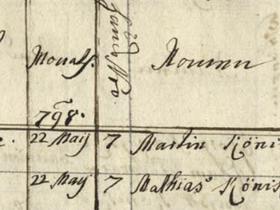 Monath. Haus Nro Nomen
798.
22 May 7 Martin König
22 May 7 Mathias König